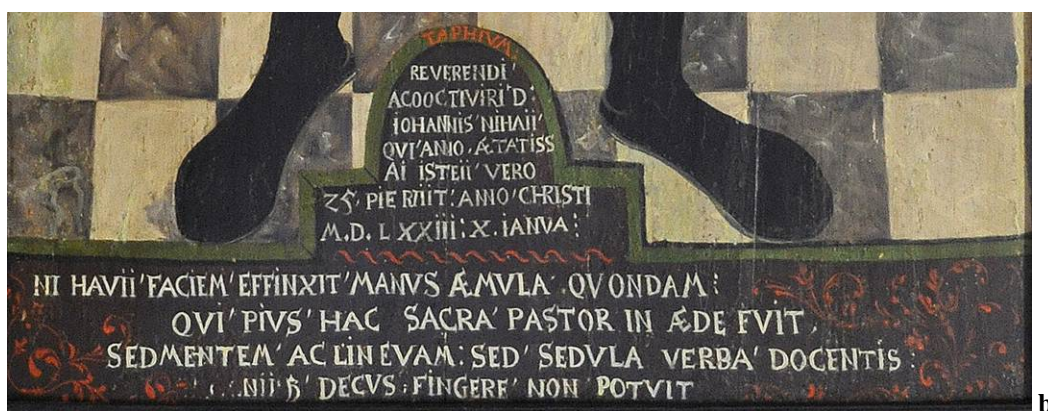 TAPHIVM
REVERENDI
ACOOCTIVIRI'D:
IOHANNIS'NIHAII'
QVI'ANNO.ÆTATISS
AI ISTEII'VERO
25.PIE RIIIT:ANNO'CHRISTI
M.D.LXXIII:X.IANVA:
NI HAVII'FACIEM'EFFINXIT'MANVS ÆMVLA.QVONDAM:
QVI'PIVS'HAC SACRA'PASTOR IN ÆDE FVIT.
SEDMENTEM'AC LINEVAM:SED'SEDVLA VERBA'DOCENTIS:
DECVS:FINGERE'NON POTVIT
b